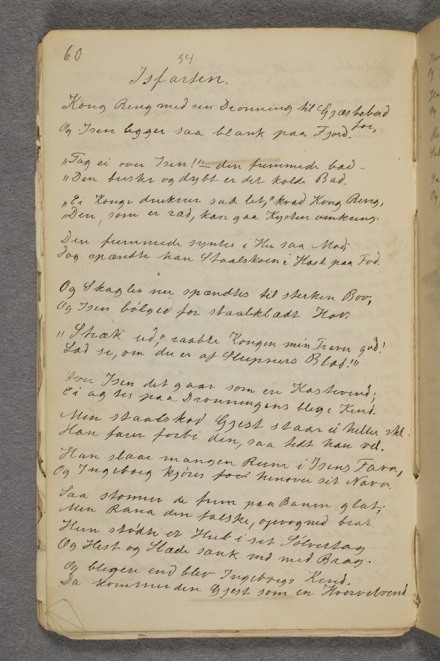 60
54
Isfarten.
Kong Ring med sin Dronning til Gjæstebud
for,
Og Isen ligger saa blank paa Fjord.
„Tag ei over Isen!" – den fremmede bad –
„Den brister og dybt er det kolde Bad.
„Ei Konge drukner saa let," kvad Kong Ring,
„Den, som er ræd, kan gaa Kysten omkring.
Den fremmede syntes i Hu saa Mod
Dog spændte han Staalskoen i Hast paa Fod.
Og Skagler nu spændtes til stærken Bov,
Og Isen bølged for staalklædt Hov.
„Stræk ud," raabte Kongen min Traver god!
Lad se, om du er af Sleipners Blod!"
Over Isen det gaar som en Kastevind;
Ei agtes paa Dronningens blege Kind.
Men staalskod Gjest staar ei heller stil
Han farer forbi den, saa tidt han vil.
Han slaar mangen Rune i Isens Farve,
Og Ingeborg kjøres hen over sit Navn
Saa stormer de frem paa Banen glat;
Men Rana den falske,
Hun stødte et Hul i sit Sølvertag
Og Hest og Slæde sank ned med Brag.
Og blegere end blev Ingeborgs Kind.
Da kommer den Gjest som en Hvirvelvind